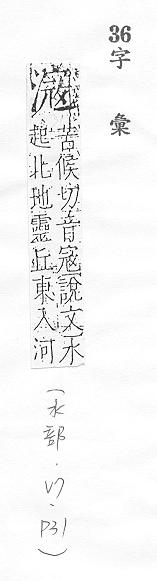 36字彙
滱
苦候切音寇說文水
起北地靈丘東入河
(水部.P31)